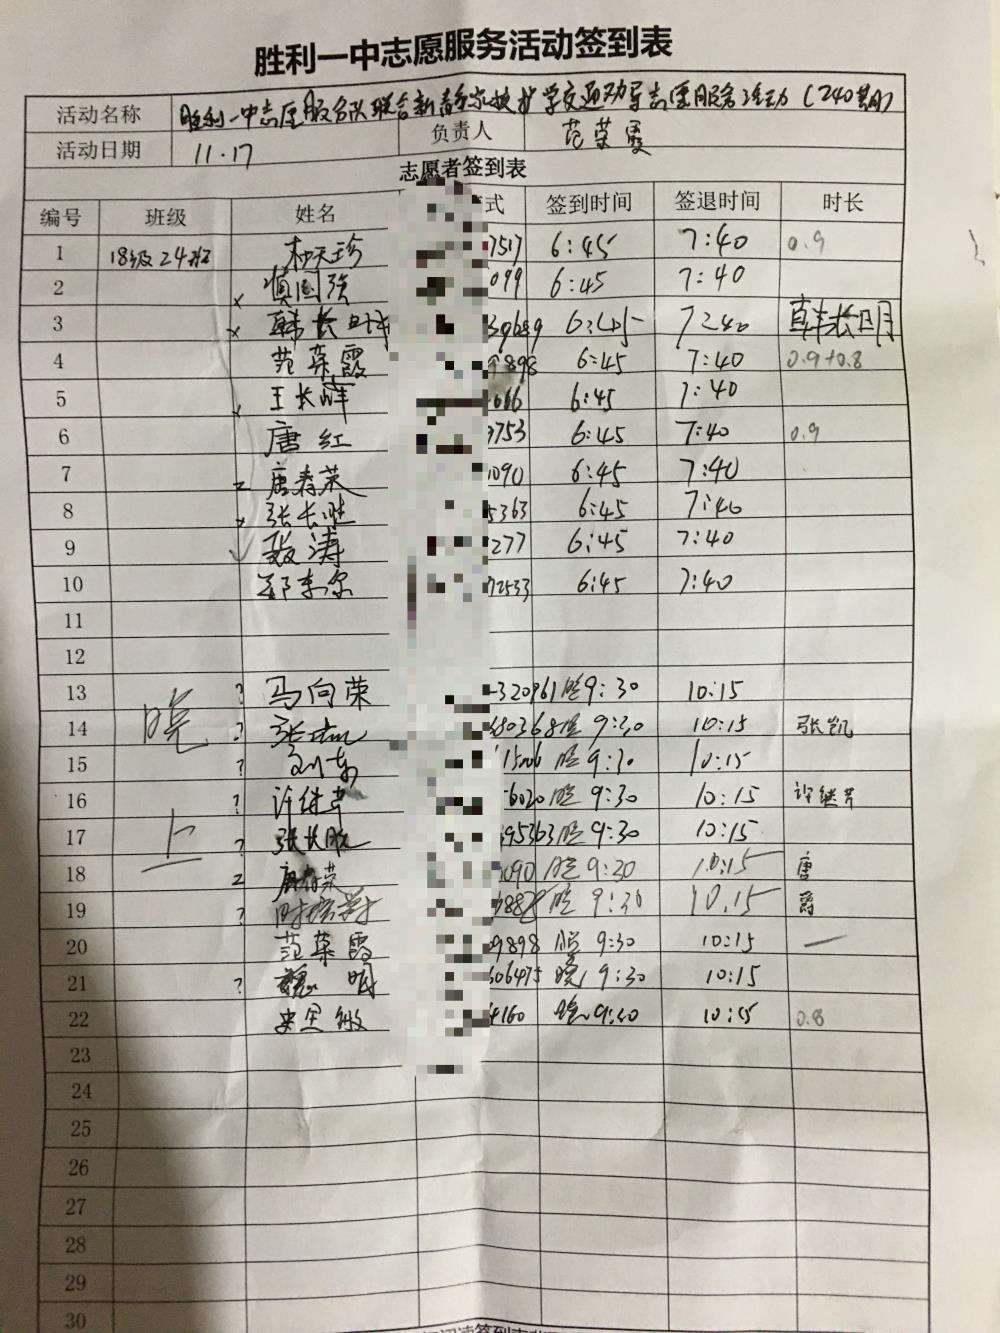 胜利一中志愿服务活动签到表
活动名称 胜利一中志愿服务队联合新青年家校护学交通劝导志愿服务活动（240期）
活动日期 11.17 负责人 范荣霞
志愿者签到表
编号 班级 姓名 式 签到时间 签退时间 时长
1 18级24班 7517 6:45 7:40 0.9
2 × 慎国强 099 6:45 7:40
3 × 韩长明 39689 7:40 韩长明
4 范荣霞 9898 6:45 7:40 0.9+0.8
5 × 王长峰 666 6:45 7:40
6 唐红 3753 6:45 7:40 0.9
7 = 唐春荣 1090 6:45 7:40
8 × 张长胜 5363 6:45 7:40
9 涛 277 6:45 7:40
10 72533 6:45 7:40
11
12
13 ? 马向荣 320961 晚9:30 10:15
14 晚 ? 张凯 680368 晚 9:30 10:15 张凯
15 ? 晚 9:30 10:15
16 ? 许继芹 6020 晚 9:30 10:15 许继芹
17 上 ? 张长胜 395363 晚 9:30 10:15
18 = 唐春荣 3090 晚 9:30 10:15 唐
19 ? 晚 9:30 10.15 爵
20 范荣霞 09898 晚 9:30 10:15 —
21 ? 606475 晚 9:30 10:15
22 4160 晚 9:30 10:15 0.8
23
24
25
26
27
28
29
30